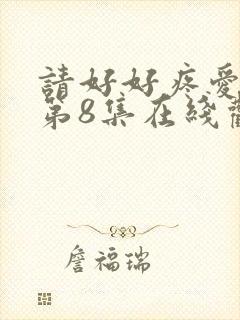 請好好疼愛
第8集在綫
詹福瑞